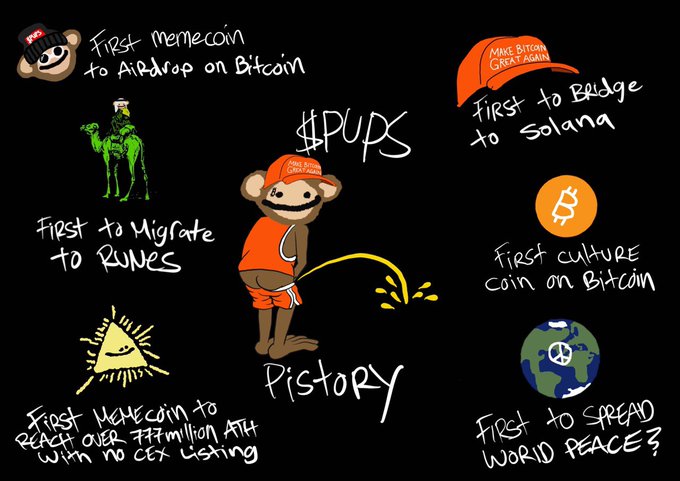 PUPS
First memecoin
to AiRdrop on Bitcoin
MAKE BITCOIN
GREAT AGAIN
FIRST to BRidge
to Solana
$PUPS
MAKE BITCOIN
GREAT AGAIN
FIRST to Migrate
to RUNes
FiRST cultuRE
coin on Bitcoin
PistoRY
FIRST MEMEcoin to
REACH OVER 777million ATH
with no CEX Listing
FIRST to SPREAD
WORLD PEACE?